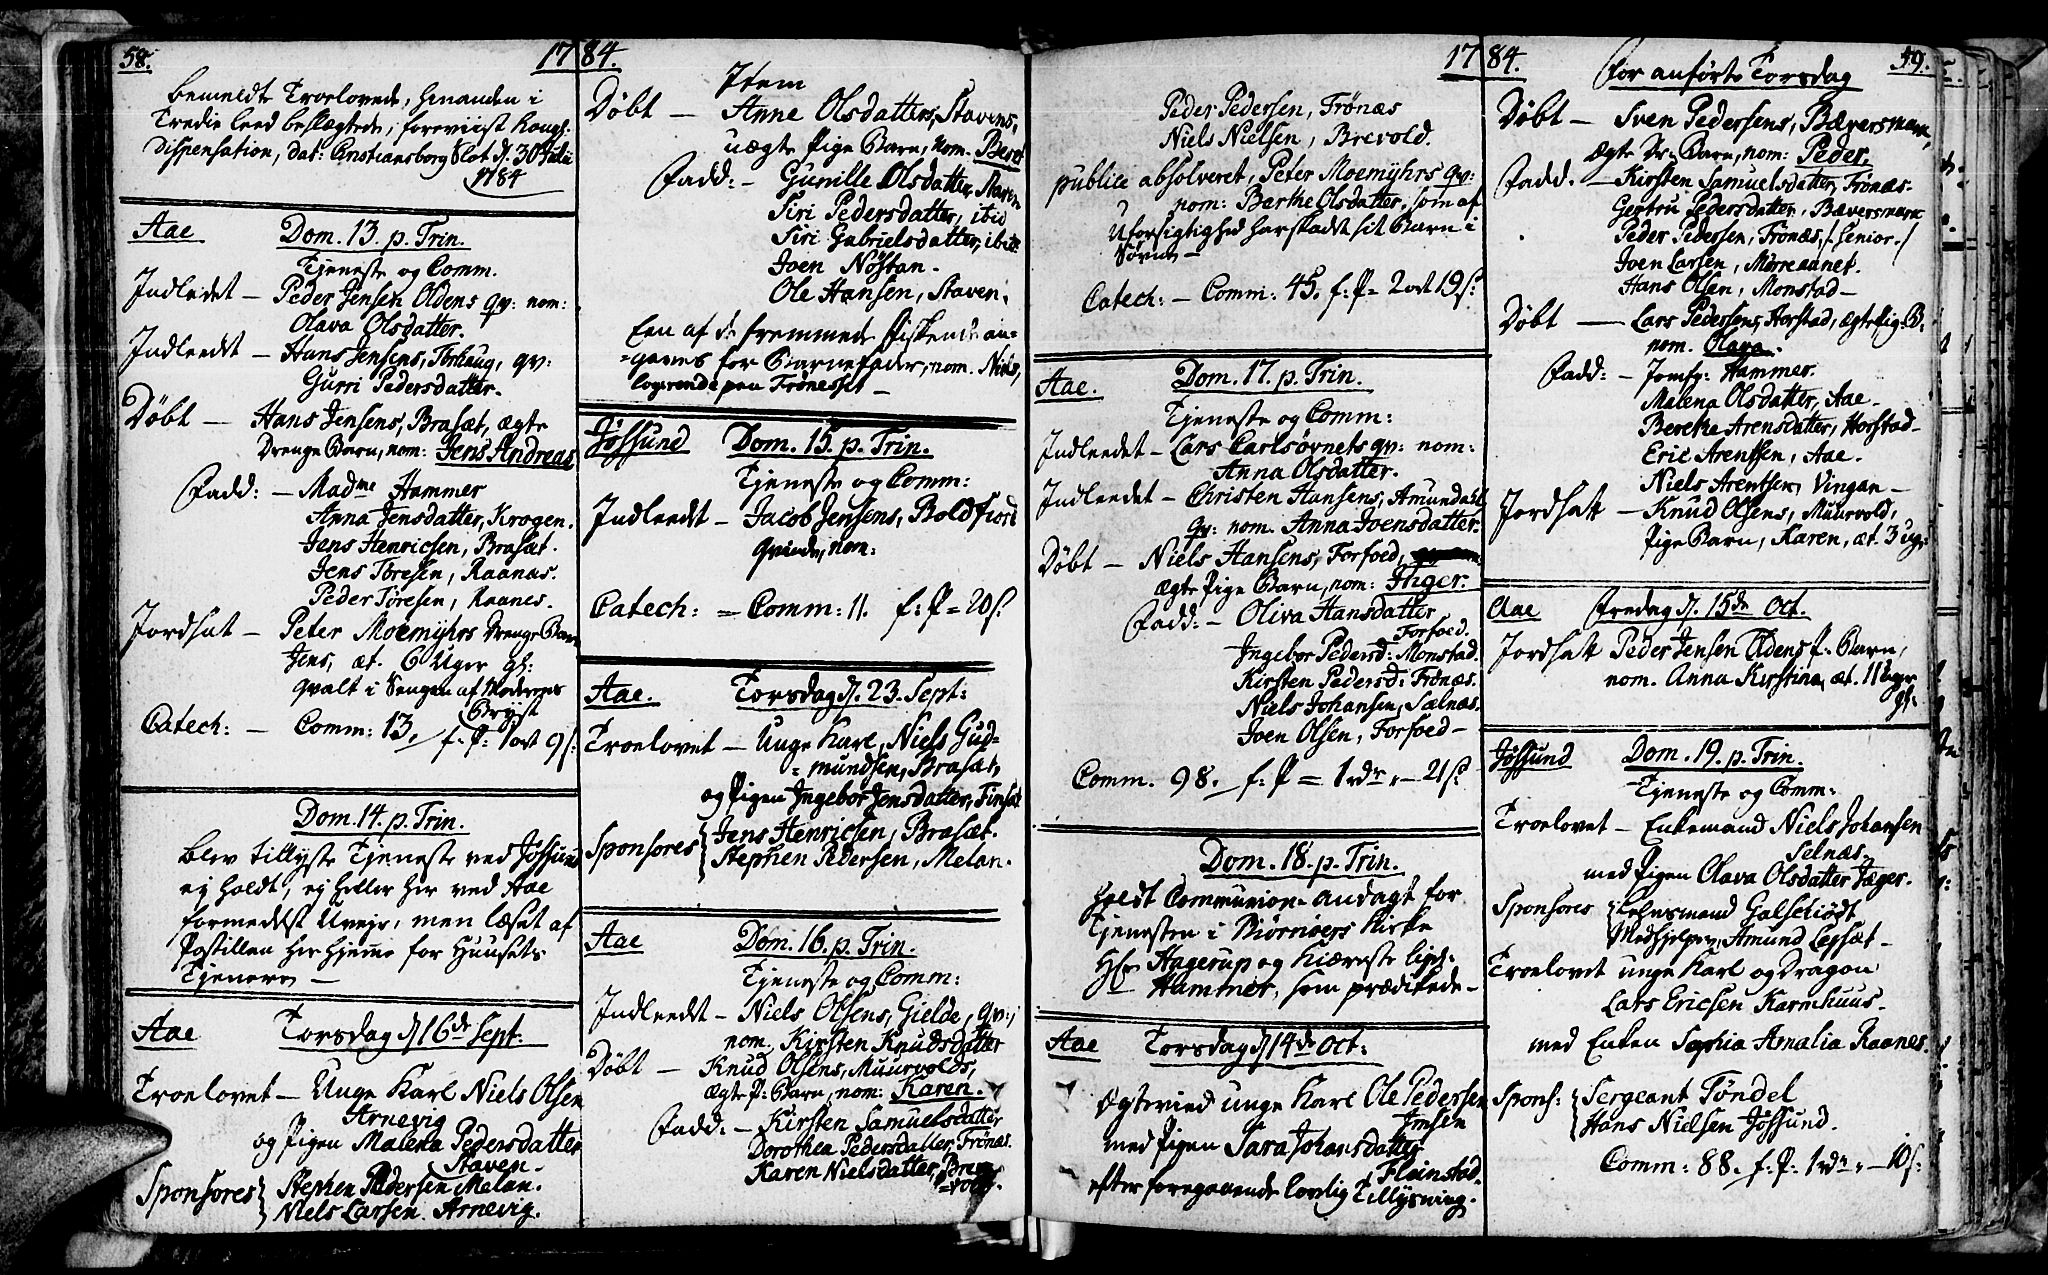 58.
1784.
bemeldte Troelovede, hinanden i
Tredie leed beslægtede, foreviist Kongl:
Dispensation, dat: Christiansborg Slot d. 30 Julii
1784
Aae Dom. 13. p. Trin.
Tjeneste og Comm.
Indledet – Peder Jensen Oldens qv: nom:
Olava Olsdatter.
Indleedt – Hans Jensens, Torhaug, qv:
Gurri Pedersdatter.
Døbt – Hans Jensens, Brasæt, ægte
Drenge Barn, nom: Jens Andreas
Fadd: – Madme Hammer
Anna Jensdatter, Krogen.
Jens Henricsen, Brasæt.
Jens Toresen, Raanæs.
Peder Toresen, Raanes.
Jordsat – Peter Moemyhrs Drenge Barn
Jens, æt. 6 Uger gl:
qvalt i Sengen af Moderens
Bryst
Catech: – Comm: 13. f: P: 1 ort 9 s:
Dom. 14. p. Trin.
blev tillyste Tjeneste ved Jøssund
ej holdt, ej heller her ved Aae
formedelst Uvejr, men læset af
Postillen her hjemme for Huusets
Tjenere –
Aae Torsdag d. 16de Sept:
Troelovet – Unge Karl Niels Olsen
Arnevig
og Pigen Malena Pedersdatter
Staven.
Sponsores Stephen Pedersen Melan.
Niels Larsen Arnevig.
Item
Døbt – Anne Olsdatters, Stavens,
uægte Pige Barn, nom. Beret
Fadd: – Gunille Olsdatter Staven
Siri Pedersdatter, ibid
Siri Gabrielsdatter, ibid
Joen Nøstan.
Ole Hansen, Staven.
Een af de fremmede Fiskende an-
gaves for Barnefader, nom. Niels,
logerende paa Frønesset –
Jøssund Dom. 15. p. Trin.
Tjeneste og Comm:
Indleedt – Jacob Jensens, Boldfiord
Qvinde, nom:
Catech: = Comm: 11. f: P = 20 s.
Aae. Torsdag d. 23. Sept:
Troelovet – Unge Karl, Niels Gud=
=mundsen, Brasæt,
og Pigen Ingebor Jensdatter, Finsæt
Sponsores Jens Henricsen, Brasæt.
Stephen Pedersen, Melan.
Aae Dom. 16. p. Trin.
Tjeneste og Comm:
Indleedt – Niels Olsens, Gielde, qv:
nom. Kirsten Knudsdatter
Døbt – Knud Olsens, Muurvolds,
ægte P: Barn, nom: Karen.
Fadd: – Kirsten Samuelsdatter
Dorothea Pedersdatter, Frønæs.
Karen Nielsdatter, Bre-
=vold.
1784.
59.
Peder Pedersen, Frønæs
Niels Nielsen, Brevold.
publice absolveret, Peter Moemyhrs qv:
nom: Barthe Olsdatter, som af
Uforsigtighed har skadet sit Barn i
Søvne –
Catech: – Comm: 45. f: P = 2 ort 19 s:
Aae. Dom. 17. p. Trin.
Tjeneste og Comm:
Indleedet – Lars Carlsøvnets qv: nom:
Anna Olsdatter.
Indleedet – Christen Hansens, Amundahl
qv: nom. Anna Joensdatter.
Døbt – Niels Hansens, Forfoed,
ægte Pige Barn, nom: Inger.
Fadd: – Oliva Hansdatter
Forfoed.
Ingebor Pedersd: Monstad.
Kirsten Pedersd: Frønæs.
Niels Johansen, Sælnæs.
Joen Olsen, Forfoed –
Comm. 98. f: P = 1 rdr – 21 s:
Dom. 18. p. Trin.
holdt Communion-andagt for
Tjenesten i Biørnøers Kirke
Hr Hagerup og Kiæreste
Hammer, som prædikede –
Aae Torsdag d. 14de Oct:
Ægteviet unge Karl Ole Pedersen
Imsen
med Pigen Sara Johansdatter
Fleinstad.
efter foregaaende lovlig Tillysning.
for anførte Torsdag
Døbt – Sven Pedersens, Bæversmark,
ægte Dr: Barn, nom: Peder.
Fadd. – Kirsten Samuelsdatter, Frønæs.
Gertru Pedersdatter, Bæversmark
Peder Pedersen, Frønæs, /: Senior :/
Joen Larsen, Mørreaanet.
Hans Olsen, Monstad –
Døbt – Lars Pedersens, Horstad, ægte Pig: B:
nom. Olava.
Fadd: – Jomfr: Hammer.
Malena Olsdatter, Aae.
Berethe Arensdatter, Horstad –
Eric Arentsen, Aae.
Niels Arentsen, Vingan –
Jordsatt – Knud Olsens, Muurvold,
Pige Barn, Karen, æt. 3 ug:
Aae Fredag d. 15de Oct.
Jordsatt Peder Jensen Oldens P. Barn,
nom. Anna Kirstina, æt. 11 Uger
gl:
Jøssund Dom. 19. p. Trin.
Tjeneste og Comm:
Troelovet – Enkemand Niels Johansen
Selnæs
med Pigen Olava Olsdatter Jæger.
Sponsores Lehnsmand Galschiødt
Medhjelper, Amund Lepsæt –
Troelovet unge Karl og Dragon
Lars Ericsen Karmhuus.
med Enken Sophia Amalia Raanes.
Spons: Sergeant Tøndel
Hans Nielsen Jøssund.
Comm: 88. f: P: 1 rdr – 10 s: